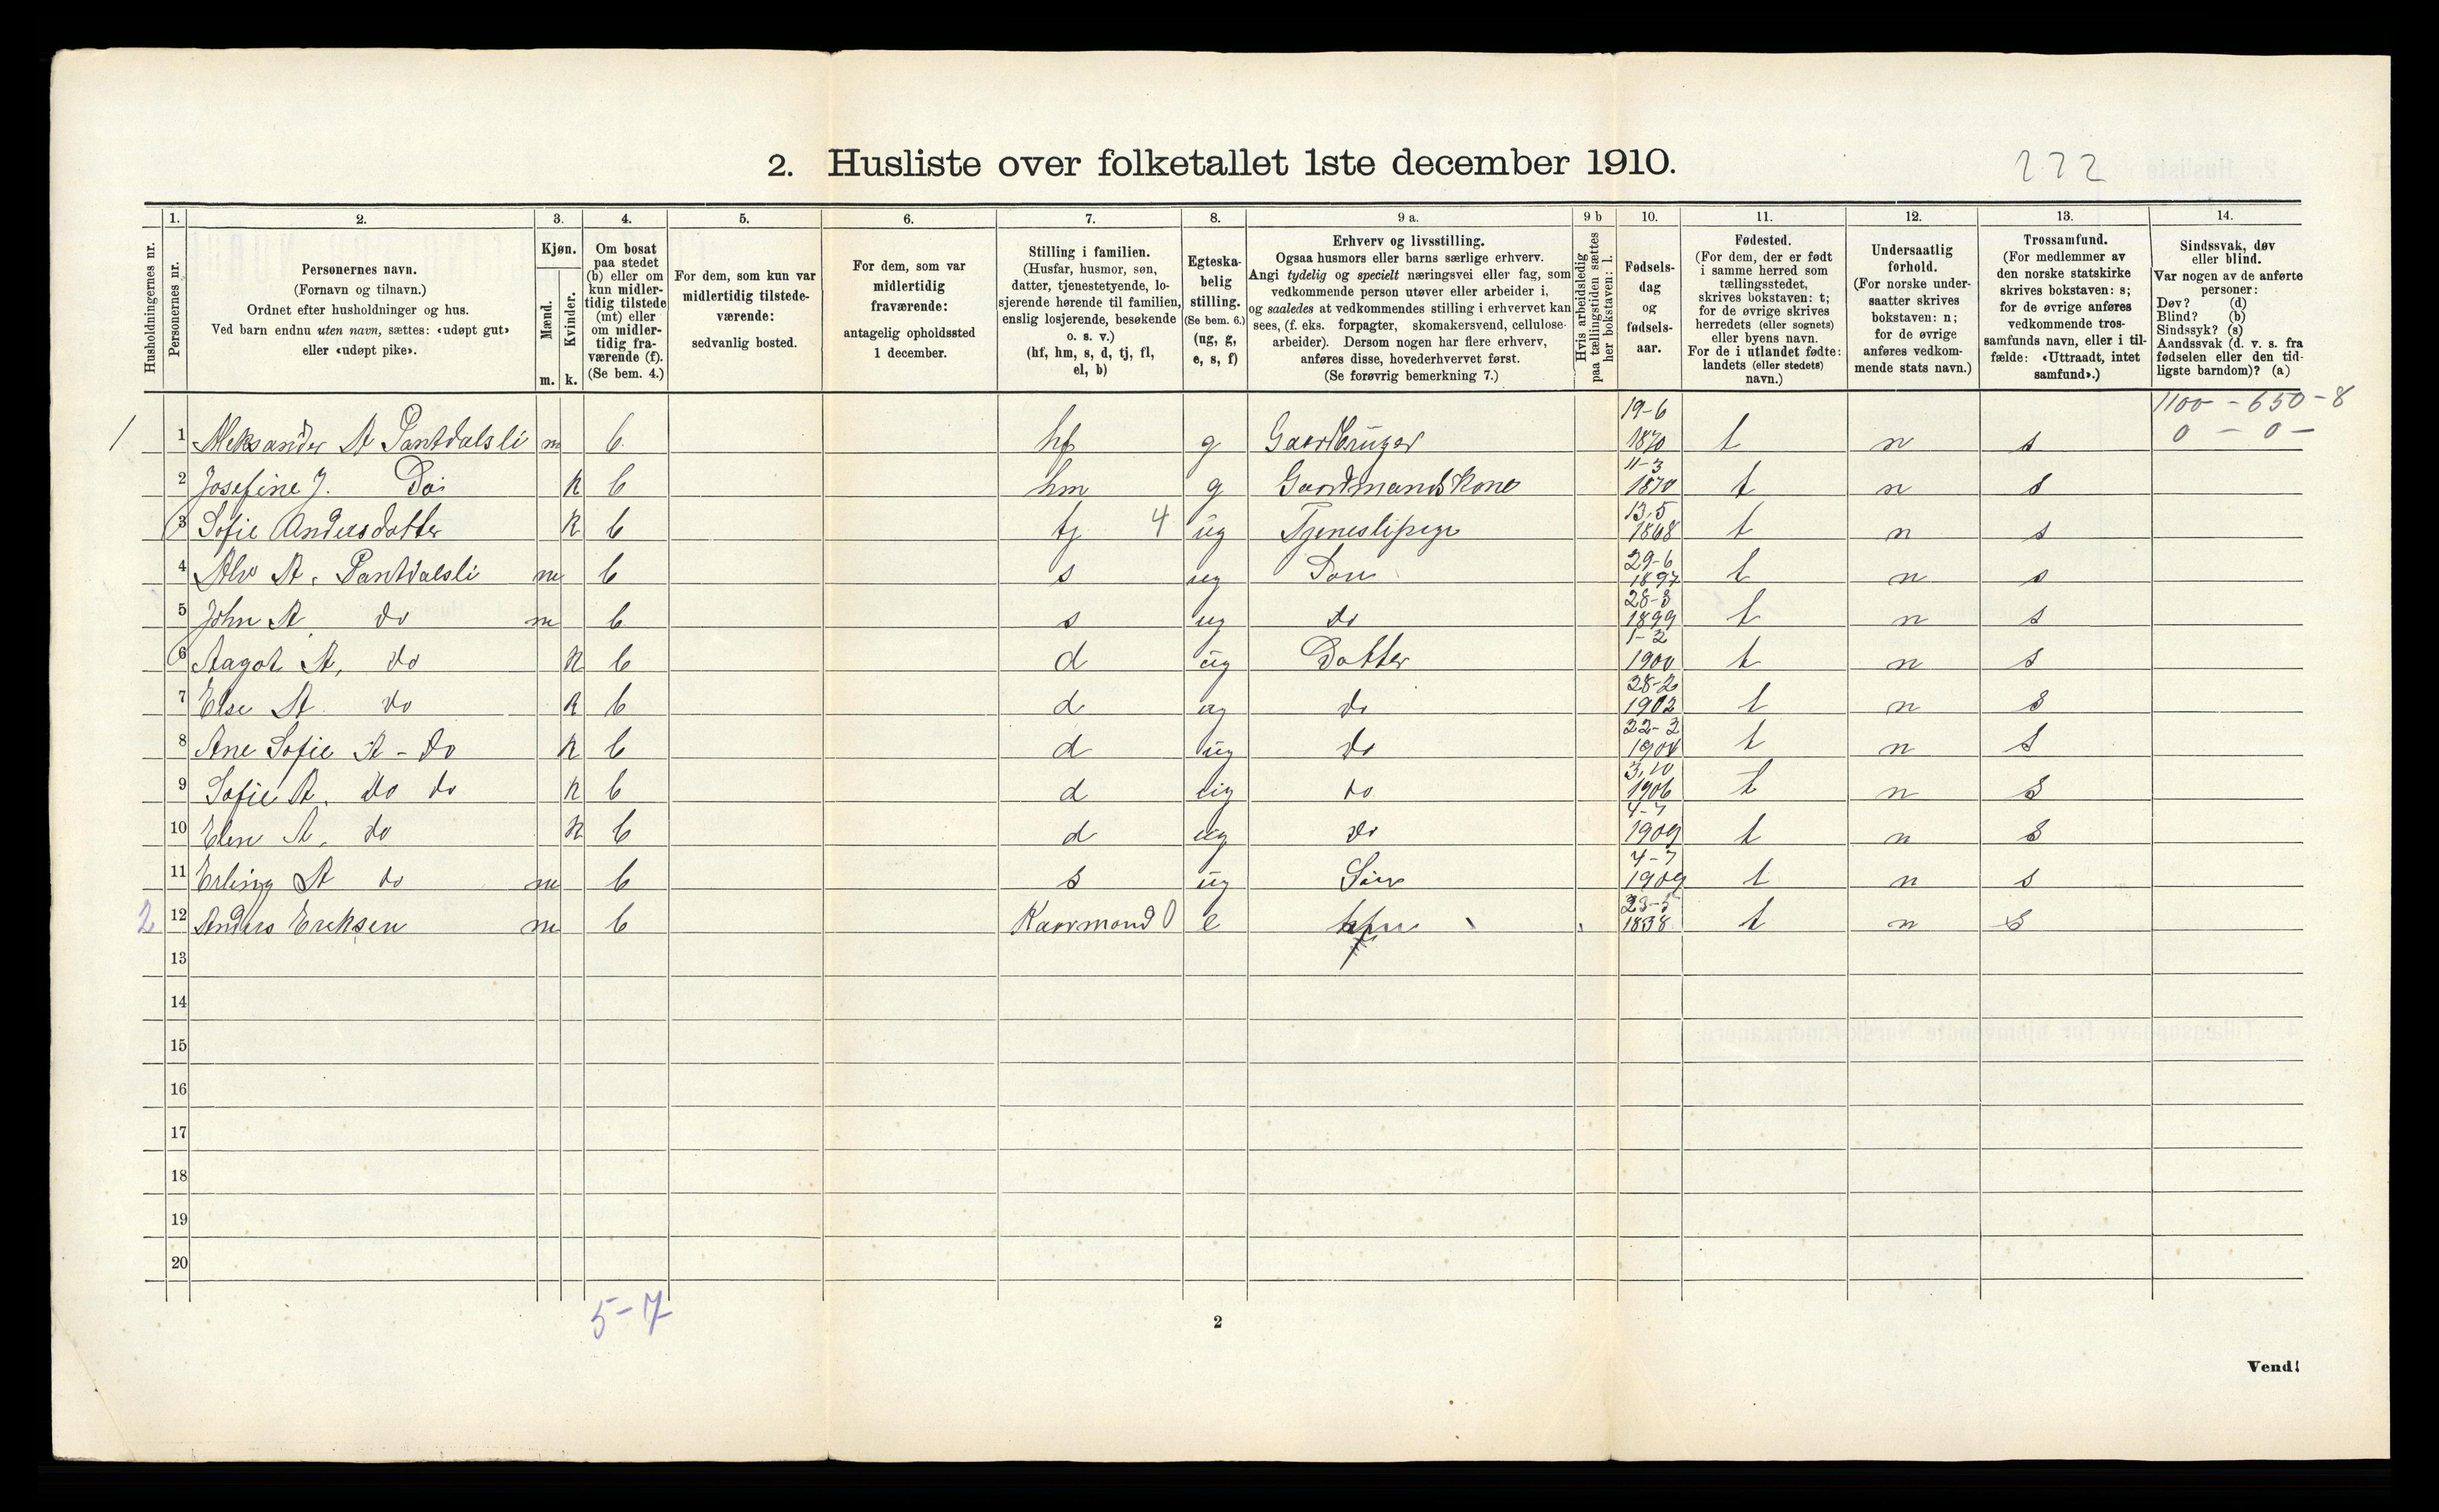 2. Husliste over folketallet 1ste december 1910.
222
Husholdningernes nr.
1.
Personernes nr.
2.
Personernes navn.
(Fornavn og tilnavn.)
Ordnet efter husholdninger og hus.
Ved barn endnu uten navn, sættes: «udøpt gut»
eller «udøpt pike».
3.
Kjøn.
Mænd.
m.
Kvinder.
k.
4.
Om bosat
paa stedet
(b) eller om
kun midler-
tidig tilstede
(mt) eller
om midler-
tidig fra-
værende (f).
(Se bem. 4.)
5.
For dem, som kun var
midlertidig tilstede-
værende:
sedvanlig bosted.
6.
For dem, som var
midlertidig
fraværende:
antagelig opholdssted
1 december.
7.
Stilling i familien.
(Husfar, husmor, søn,
datter, tjenestetyende, lo-
sjerende hørende til familien,
enslig losjerende, besøkende
o. s. v.)
(hf, hm, s, d, tj, fl,
el, b)
8.
Egteska-
belig
stilling.
(Se bem. 6.)
(ug, g,
e, s, f)
9 a.
Erhverv og livsstilling.
Ogsaa husmors eller barns særlige erhverv.
Angi tydelig og specielt næringsvei eller fag, som
vedkommende person utøver eller arbeider i,
og saaledes at vedkommendes stilling i erhvervet kan
sees, (f. eks. forpagter, skomakersvend, cellulose-
arbeider). Dersom nogen har flere erhverv,
anføres disse, hovederhvervet først.
(Se forøvrig bemerkning 7.)
9 b
Hvis arbeidsledig
paa tællingstiden sættes
her bokstaven: l.
10.
Fødsels-
dag
og
fødsels-
aar.
11.
Fødested.
(For dem, der er født
i samme herred som
tællingsstedet,
skrives bokstaven: t;
for de øvrige skrives
herredets (eller sognets)
eller byens navn.
For de i utlandet fødte:
landets (eller stedets)
navn.)
12.
Undersaatlig
forhold.
(For norske under-
saatter skrives
bokstaven: n;
for de øvrige
anføres vedkom-
mende stats navn.)
13.
Trossamfund.
(For medlemmer av
den norske statskirke
skrives bokstaven: s;
for de øvrige anføres
vedkommende tros-
samfunds navn, eller i til-
fælde: «Uttraadt, intet
samfund».)
14.
Sindssvak, døv
eller blind.
Var nogen av de anførte
personer:
Døv? (d)
Blind? (b)
Sindssyk? (s)
Aandssvak (d. v. s. fra
fødselen eller den tid-
ligste barndom)? (a)
1100 - 650 - 8
0 - 0 -
1 1 Aleksander A Pantdalsli m b hf g Gaardbruger 19-6 1870 t n s
2 Josefine J. Do k b hm g Gardmandskone 11-3 1870 t n s
3 Sofie Andersdatter k b tj 4 ug Tjenestepige 13,5 1868 t n s
4 Alv A. Pantdalsli m b s ug Søn 29-6 1897 t n s
5 John A do m b s ug do 28-8 1899 t n s
6 Aagot A, do k b d ug Datter 1-2 1900 t n s
7 Else A do k b d ug do 28-2 1902 t n s
8 Ane Sofie A - do k b d ug do 22-3 t n s
9 Sofie A. do do k b d ug do 3,10 1906 t n s
10 Elen A. do k b d ug do 4-7 1909 t n s
11 Erling A do m b s ug Søn 4-7 1909 t n s
2 12 Anders Eriksen m b Kaarmand 0 e 23-5 1838 t n s
13
14
15
16
17
18
19
20
5-7
2
Vend!